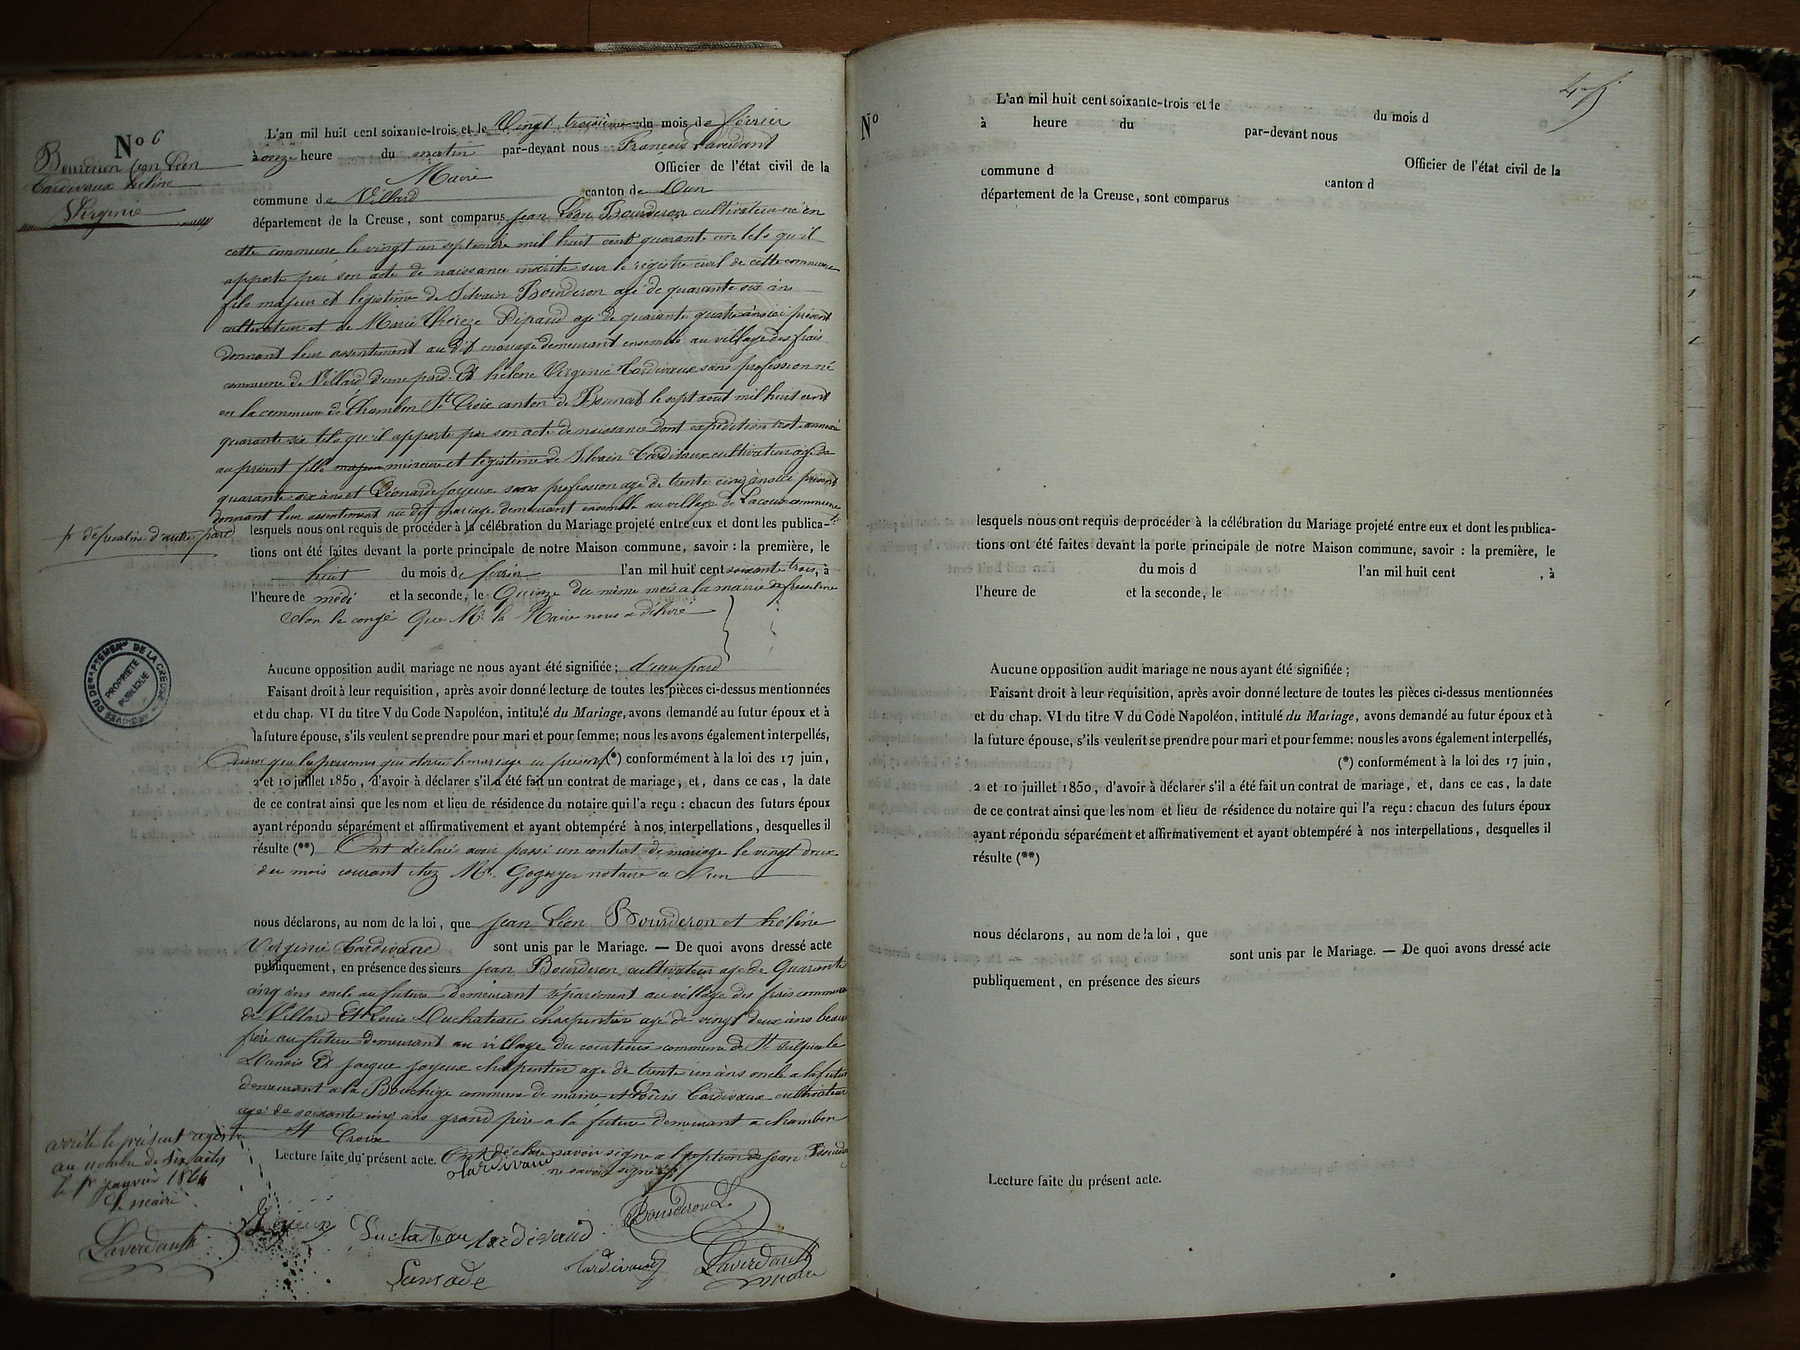 No 6
Bourderon Jean Léon
Cardivaux hélène
Virginie
L'an mil huit cent soixante-trois et le Vingt troisième du mois de février
à onze heure du matin par-devant nous François Laverdant
Maire Officier de l'état civil de la
commune de Villard canton de Dun
département de la Creuse, sont comparus Jean Léon Bourderon cultivateur né en
cette commune le vingt un septembre mil huit cent quarante un tels qu'il
apporte par son acte de naissance inscrite sur le registre civil de cette commune
fils majeur et légistime de Silvain Bourderon agé de quarante six ans
cultivateur et de Marie Thereze Dipaud agé de quarante quatre ans ici présent
donnant leur assentiment au dit mariage demeurant ensemble au village des frais
commune de Villard d'une pard. Et hélène Virginie Cardivaux sans profession né
en la commune de Chambon Ste Croix canton de Bonnat le sept aout mil huit cent
quarante six tels qu'il apporte par son acte de naissance dont expédition est annexé
au présent fille majeur mineure et légistime de Silvain Cardivaux cultivateur agé de
quarante six ans et Léonarde Joyeux sans profession agé de trente cinq ans ici présent
donnant leur assentiment au dit mariage demeurant ensemble au village de Lacoux commune
fr défresaline d'autre pard
lesquels nous ont requis de procéder à la célébration du Mariage projeté entre eux et dont les publica-
tions ont été faites devant la porte principale de notre Maison commune, savoir : la première, le
huit du mois de février l'an mil huit cent soixante trois, à
l'heure de midi et la seconde, le Quinze du même mois a la mairie de fresseline
selon le congé que Mr le Maire nous a délivré
Aucune opposition audit mariage ne nous ayant été signifiée ; d'une pard
Faisant droit à leur requisition, après avoir donné lecture de toutes les pièces ci-dessus mentionnées
et du chap. VI du titre V du Code Napoléon, intitulé du Mariage, avons demandé au futur époux et à
la future épouse, s'ils veulent se prendre pour mari et pour femme; nous les avons également interpellés,
Ainsi que les personnes qui autorise le mariage au présent (*) conformément à la loi des 17 juin,
2 et 10 juillet 1850, d'avoir à déclarer s'il a été fait un contrat de mariage, et, dans ce cas, la date
de ce contrat ainsi que les nom et lieu de résidence du notaire qui l'a reçu : chacun des futurs époux
ayant répondu séparément et affirmativement et ayant obtempéré à nos interpellations, desquelles il
résulte (**) Ont déclaré avoir passé un contrat de mariage le vingt deux
du mois courant chez Mr. Gogoyer notaire a Dun
nous déclarons, au nom de la loi, que Jean Léon Bourderon et hélène
Virginie Cardivaud sont unis par le Mariage. — De quoi avons dressé acte
publiquement, en présence des sieurs Jean Bourderon cultivateur agé de Quarante
cinq ans oncle au futur demeurant séparément au village des frais commune
de Villard Et Louis Duchateau charpentier agé de vingt deux ans beau
frère au future demeurant au village du courtioux commune de St Sulpice le
Dunois Et Jacque Joyeux charpentier agé de trente un ans oncle a la future
demeurant a la Bouchige commune de maine et Louis Cardivaux cultivateur
agé de soixante cinq ans grand père a la future demeurant a chambon
St Croix
Lecture faite du présent acte. Ont déclaré savoir signe a l'exeption de Jean Bourderon
ne savoir signe
Cardivaud
arrêté le présent registre
au nombre de six actes
le 1r janvier 1864
Le maire
Laverdant
Joyeux
Duchateau
Cardivaud
Bourderon L.
Lansade
Cardivaud
Laverdant
maire
DU DÉPARTEMENT DE LA CREUSE
ARCHIVES
PROPRIÉTÉ
PUBLIQUE
No
L'an mil huit cent soixante-trois et le du mois d
à heure du par-devant nous
Officier de l'état civil de la
commune d canton d
département de la Creuse, sont comparus
lesquels nous ont requis de procéder à la célébration du Mariage projeté entre eux et dont les publica-
tions ont été faites devant la porte principale de notre Maison commune, savoir : la première, le
du mois d l'an mil huit cent , à
l'heure de et la seconde, le
Aucune opposition audit mariage ne nous ayant été signifiée ;
Faisant droit à leur requisition, après avoir donné lecture de toutes les pièces ci-dessus mentionnées
et du chap. VI du titre V du Code Napoléon, intitulé du Mariage, avons demandé au futur époux et à
la future épouse, s'ils veulent se prendre pour mari et pour femme: nous les avons également interpellés,
(*) conformément à la loi des 17 juin,
2 et 10 juillet 1850, d'avoir à déclarer s'il a été fait un contrat de mariage, et, dans ce cas, la date
de ce contrat ainsi que les nom et lieu de résidence du notaire qui l'a reçu : chacun des futurs époux
ayant répondu séparément et affirmativement et ayant obtempéré à nos interpellations, desquelles il
résulte (**)
nous déclarons, au nom de la loi, que
sont unis par le Mariage. — De quoi avons dressé acte
publiquement, en présence des sieurs
Lecture faite du présent acte.